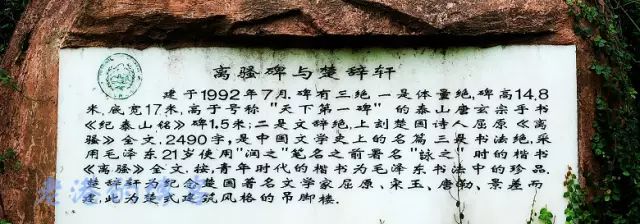 离骚碑与楚辞轩
建于1992年7月.碑有三绝.一是体量绝,碑高14.8
米,底宽17米,高于号称"天下第一碑"的泰山唐玄宗手书
《纪泰山铭》碑1.5米;二是文辞绝,上刻楚国诗人屈原《离
骚》全文,2490字,是中国文学史上的名篇.三是书法绝,采
用毛泽东21岁使用"润之"笔名之前署名"詠之"时的楷书
《离骚》全文.按,青年时代的楷书为毛泽东书法中的珍品.
楚辞轩为纪念楚国著名文学家屈原、宋玉、唐勒、景差而
建.此为楚式建筑风格的吊脚楼.